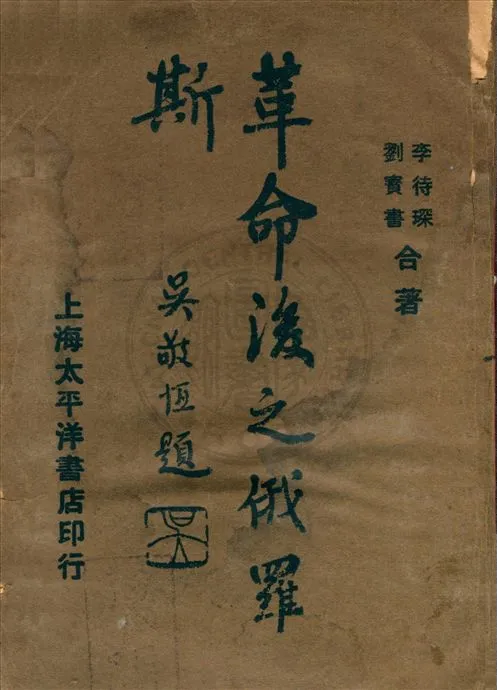 李待琛
劉寶書
合著
革命後之俄羅
斯
吳敬恆題
上海太平洋書店印行